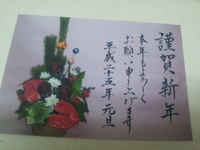 謹賀新年
本年もよろしく
お願い申し上げます
平成二十五年 元旦